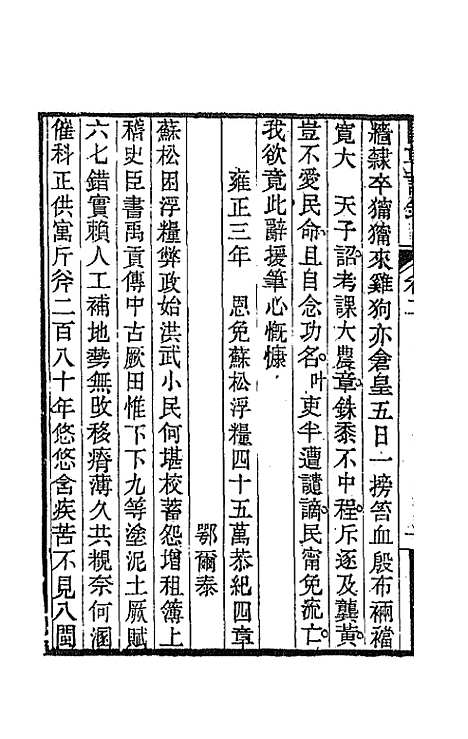 牆隸卒獝獝來雞狗亦倉皇五日一搒笞血殷布裲襠
寬大　天子詔考課大農章銖黍不中程斥逐及龔黃
豈不愛民命且自念功名叶吏半遭譴謫民甯免㐬亡
我欲竟此辭援筆心慨慷
雍正三年　恩免蘇松浮糧四十五萬恭紀四章
鄂爾泰
蘇松困浮糧弊政始洪武小民何堪校蓄怨增租簿上
稽史臣書禹貢傳中古厥田惟下下九等塗泥土厥賦
六七錯實賴人工補地勢無攺移瘠薄久共覩奈何溷
催科正供寓斤斧二百八十年悠悠含疾苦不見八閩